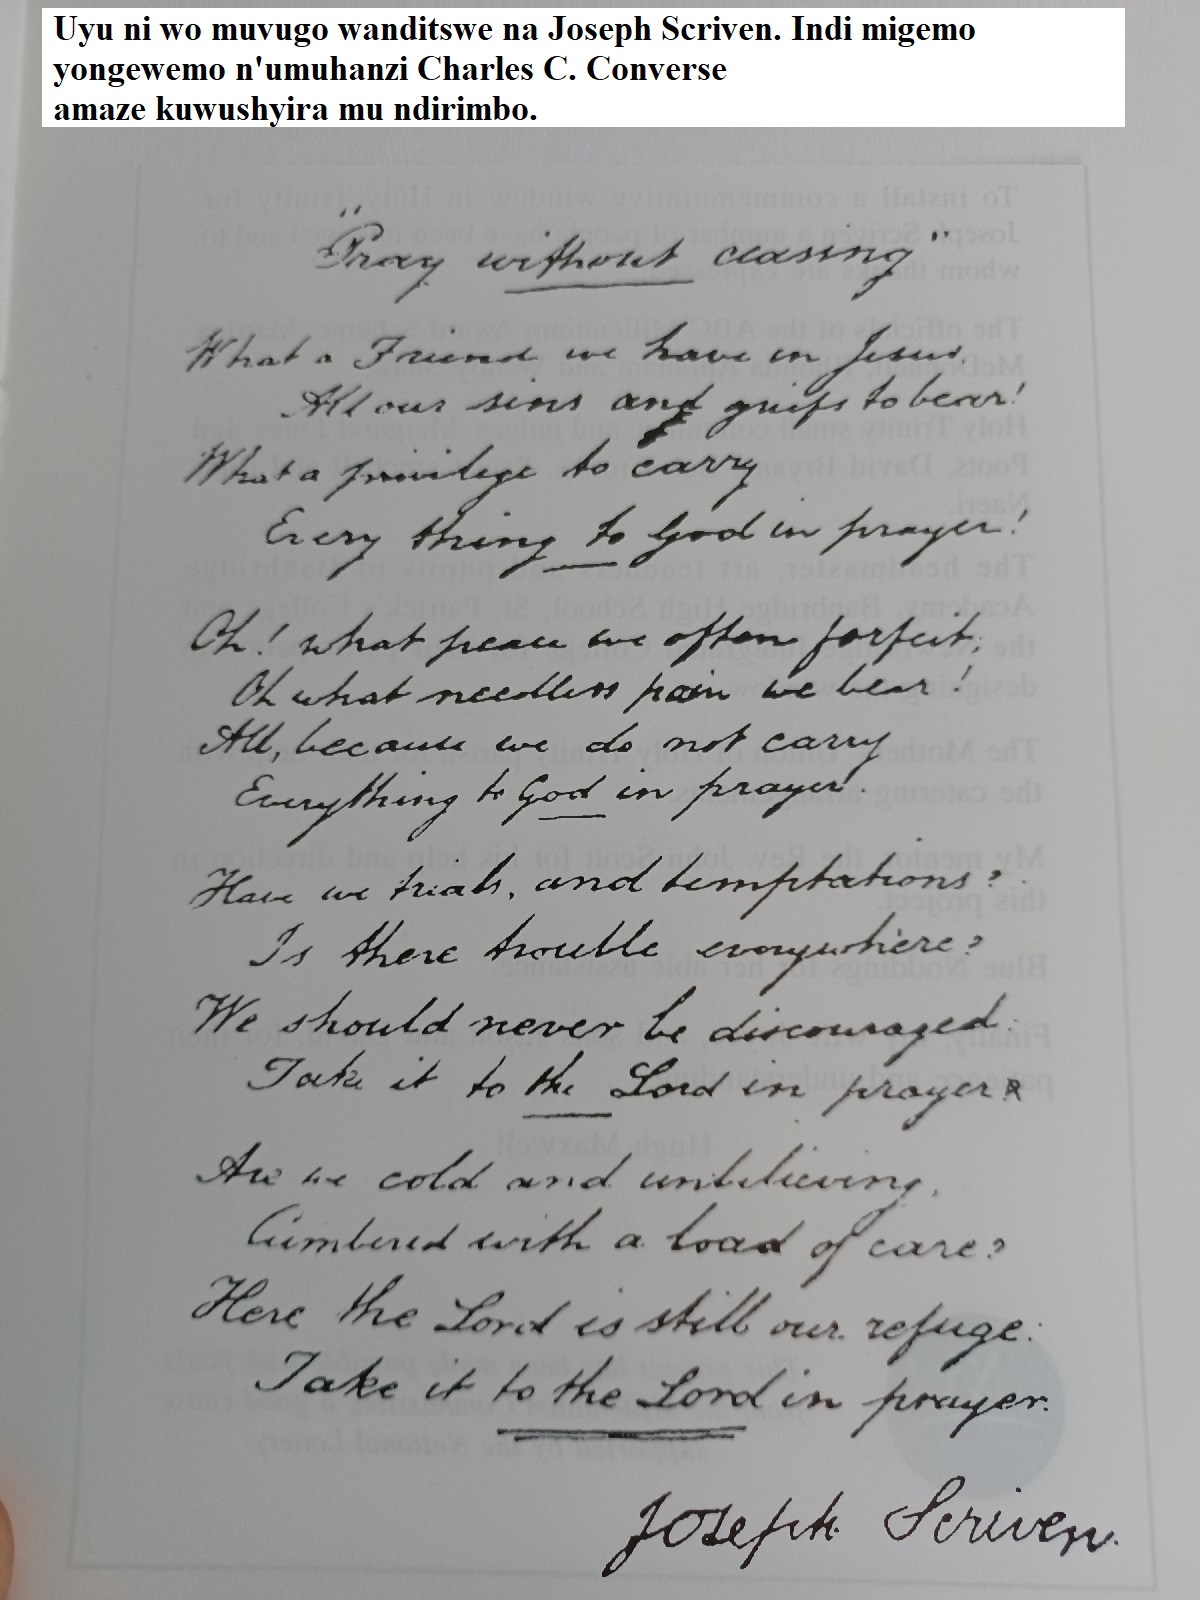 Uyu ni wo muvugo wanditswe na Joseph Scriven. Indi migemo
yongewemo n'umuhanzi Charles C. Converse
amaze kuwushyira mu ndirimbo.
"Pray without ceasing"
What a Friend we have in Jesus,
All our sins and griefs to bear!
What a privilege to carry
Every thing to God in prayer!
Oh! what peace we often forfeit,
Oh what needless pain we bear!
All, because we do not carry
Everything to God in prayer.
Have we trials, and temptations?
Is there trouble everywhere?
We should never be discouraged.
Take it to the Lord in prayer.
Are we cold and unbelieving,
Cumbered with a load of care?
Here the Lord is still our refuge:
Take it to the Lord in prayer.
Joseph Scriven.